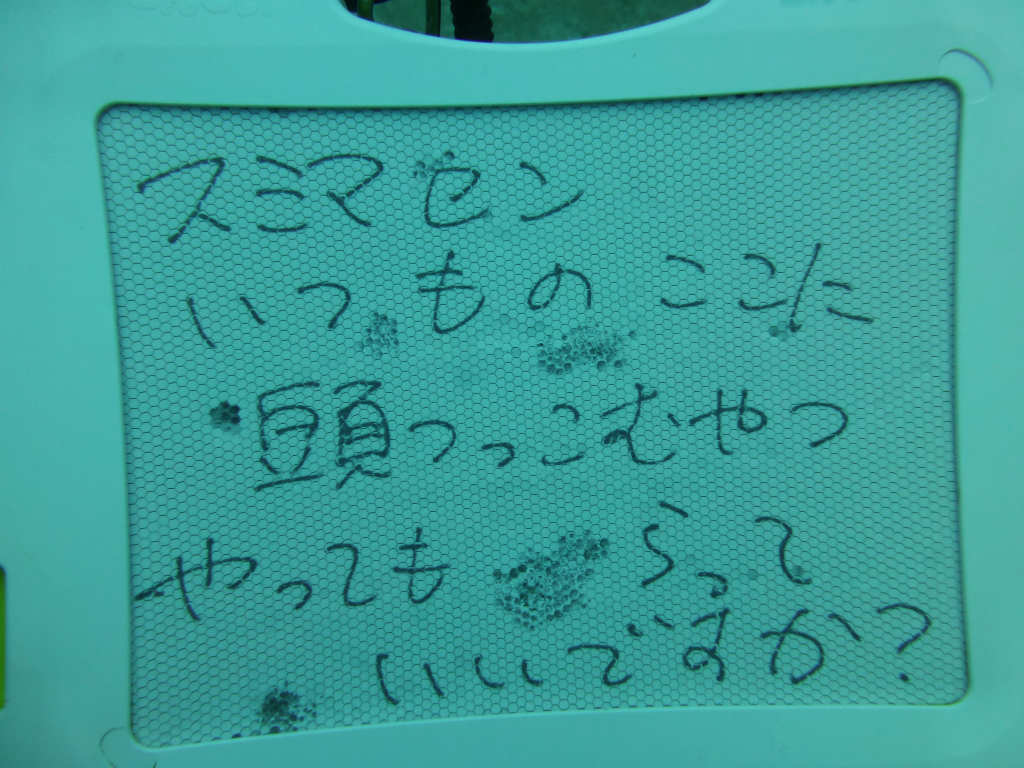 スミマセン
いつものここに
頭つっこむやつ
やってもらって
いいですか?